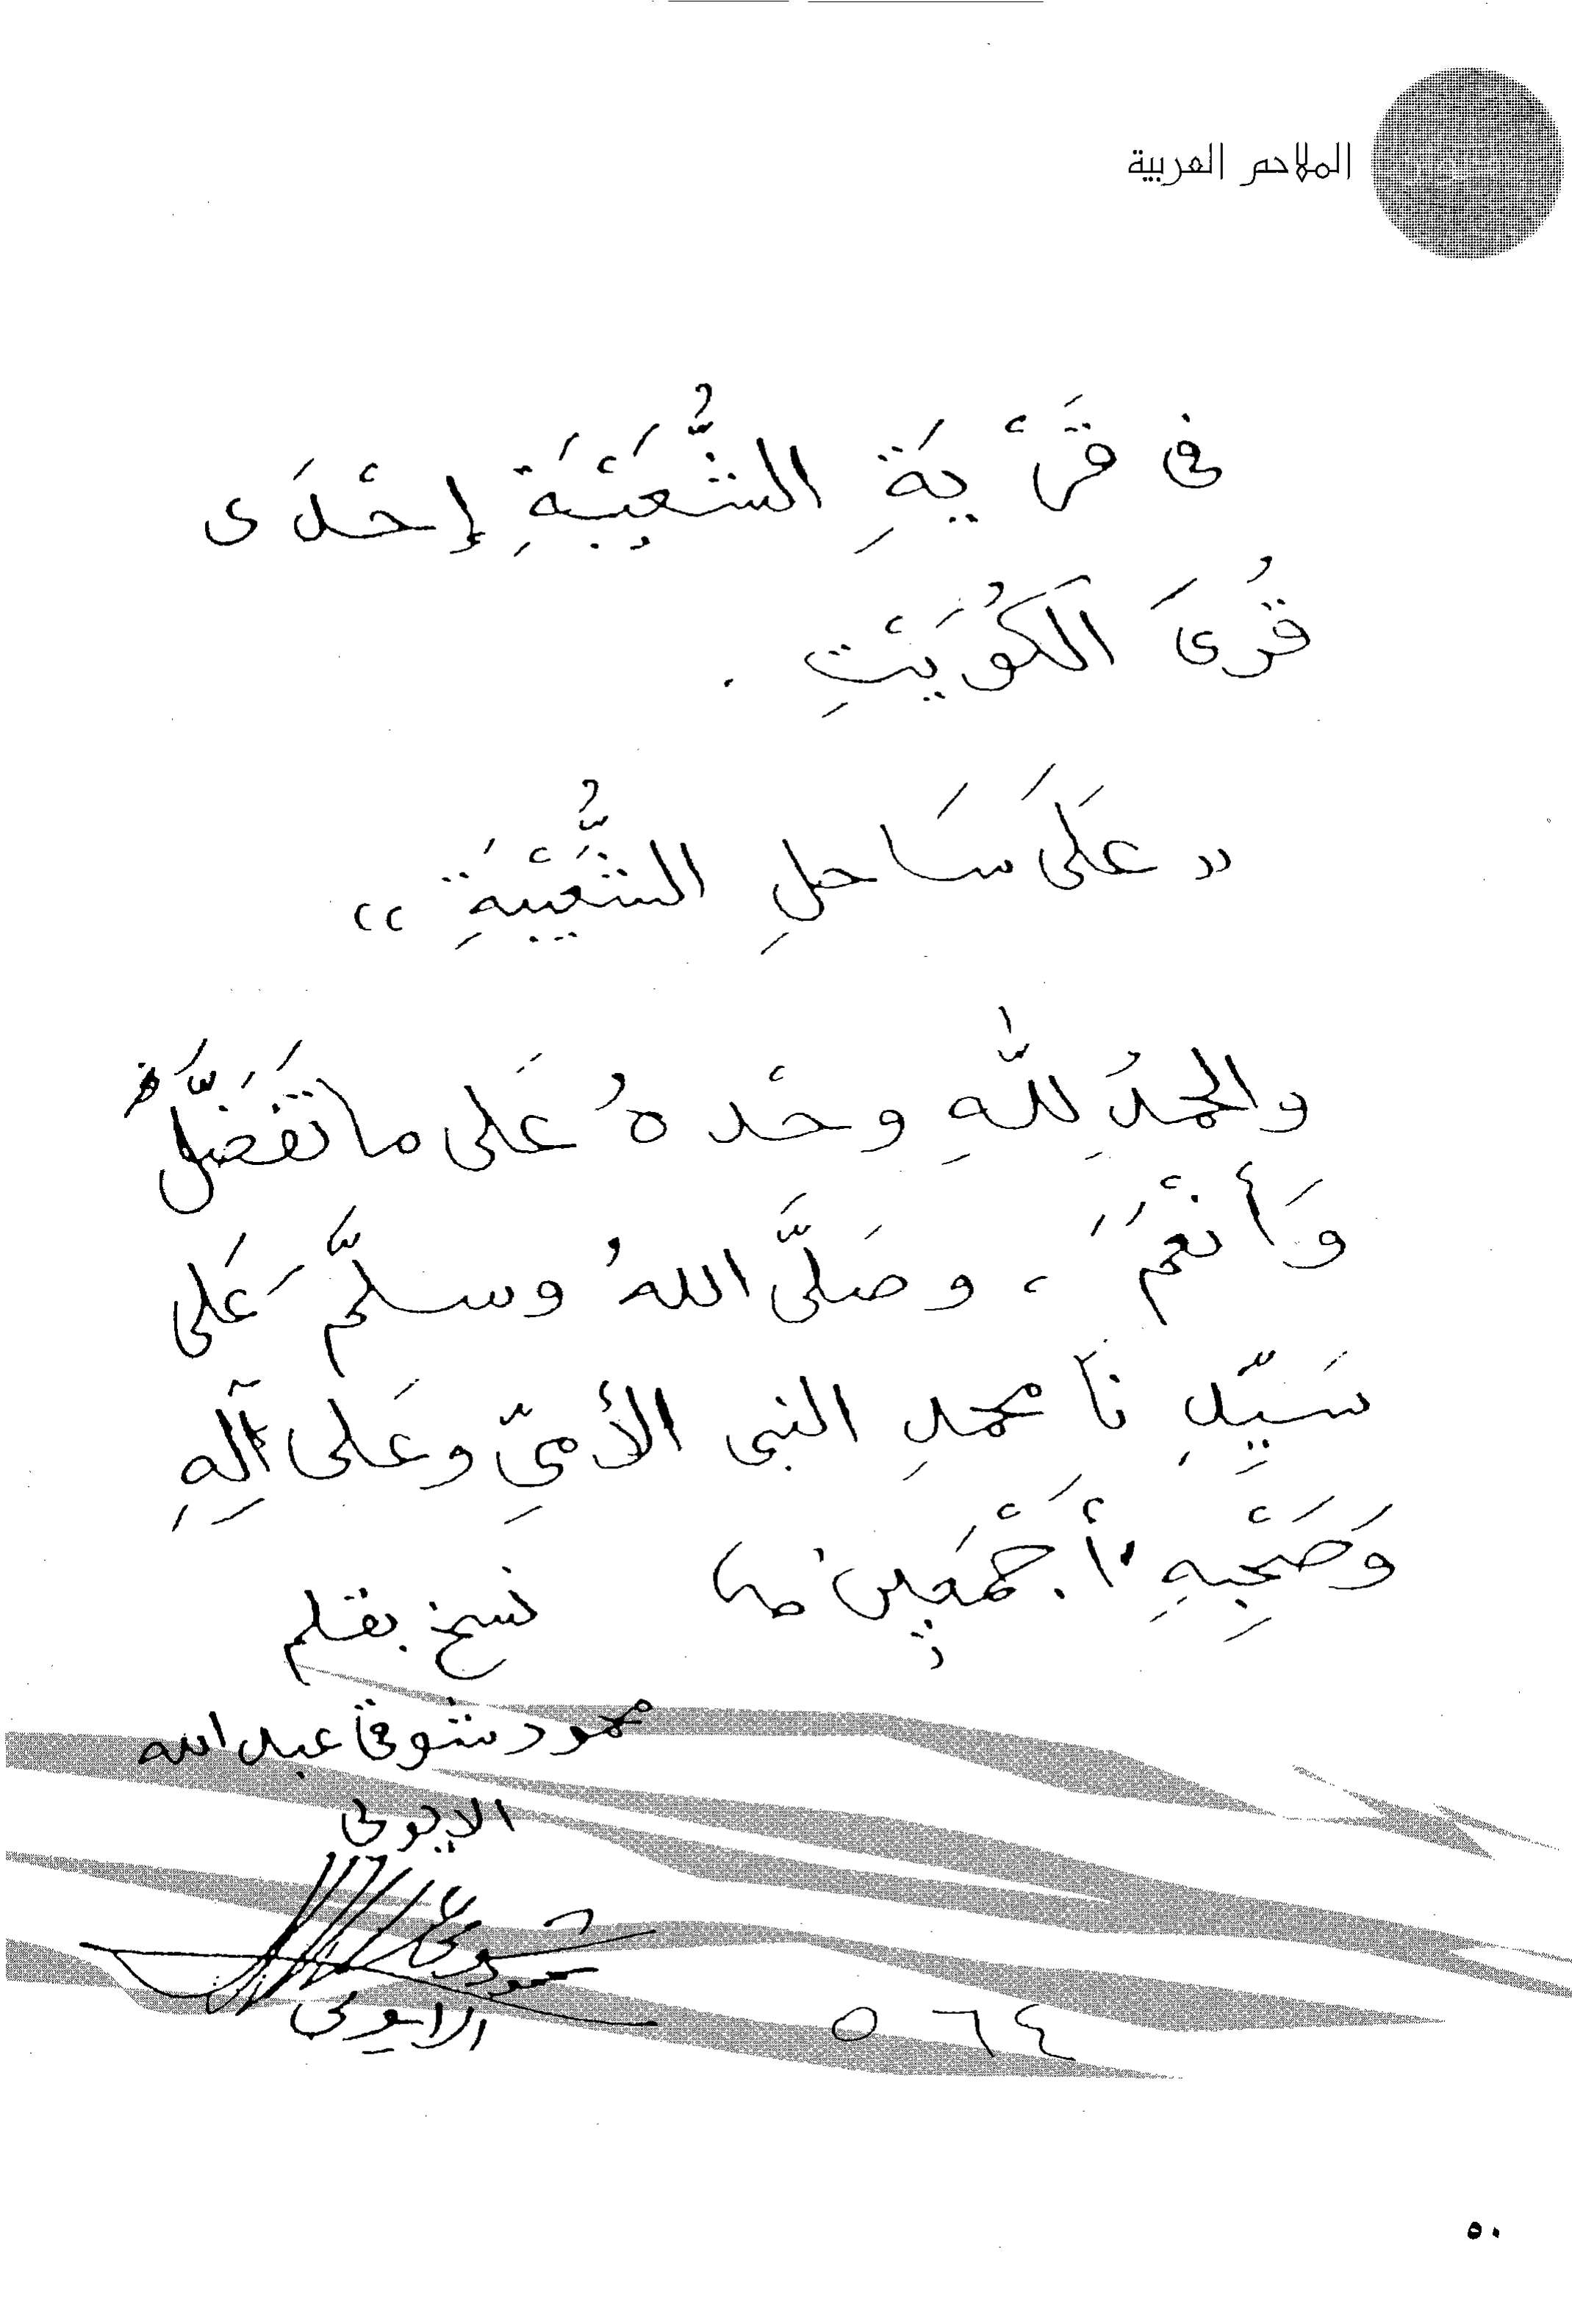 الملاحم العربية
فى قَرْيَةِ الشُّعَيْبَةِ إِحْدَى
قُرَى الكُوَيْتِ .
« عَلَى سَاحلِ الشُّعَيْبَةِ »
والحمدُ لِلّٰهِ وحْدهُ عَلى ما تَفَضَّلَ
وَأنْعَمَ ، وصَلَّى اللهُ وسلَّمَ عَلى
سَيِّدِنَا محمدِ النبى الأمىِّ وعَلى آلِهِ
وَصَحْبِهِ أَجْمَعِين
نسخ بقلم
محمود شوقى عبد الله
الايوبى
شوقى
الايوبى
٥٦٤
٥٠